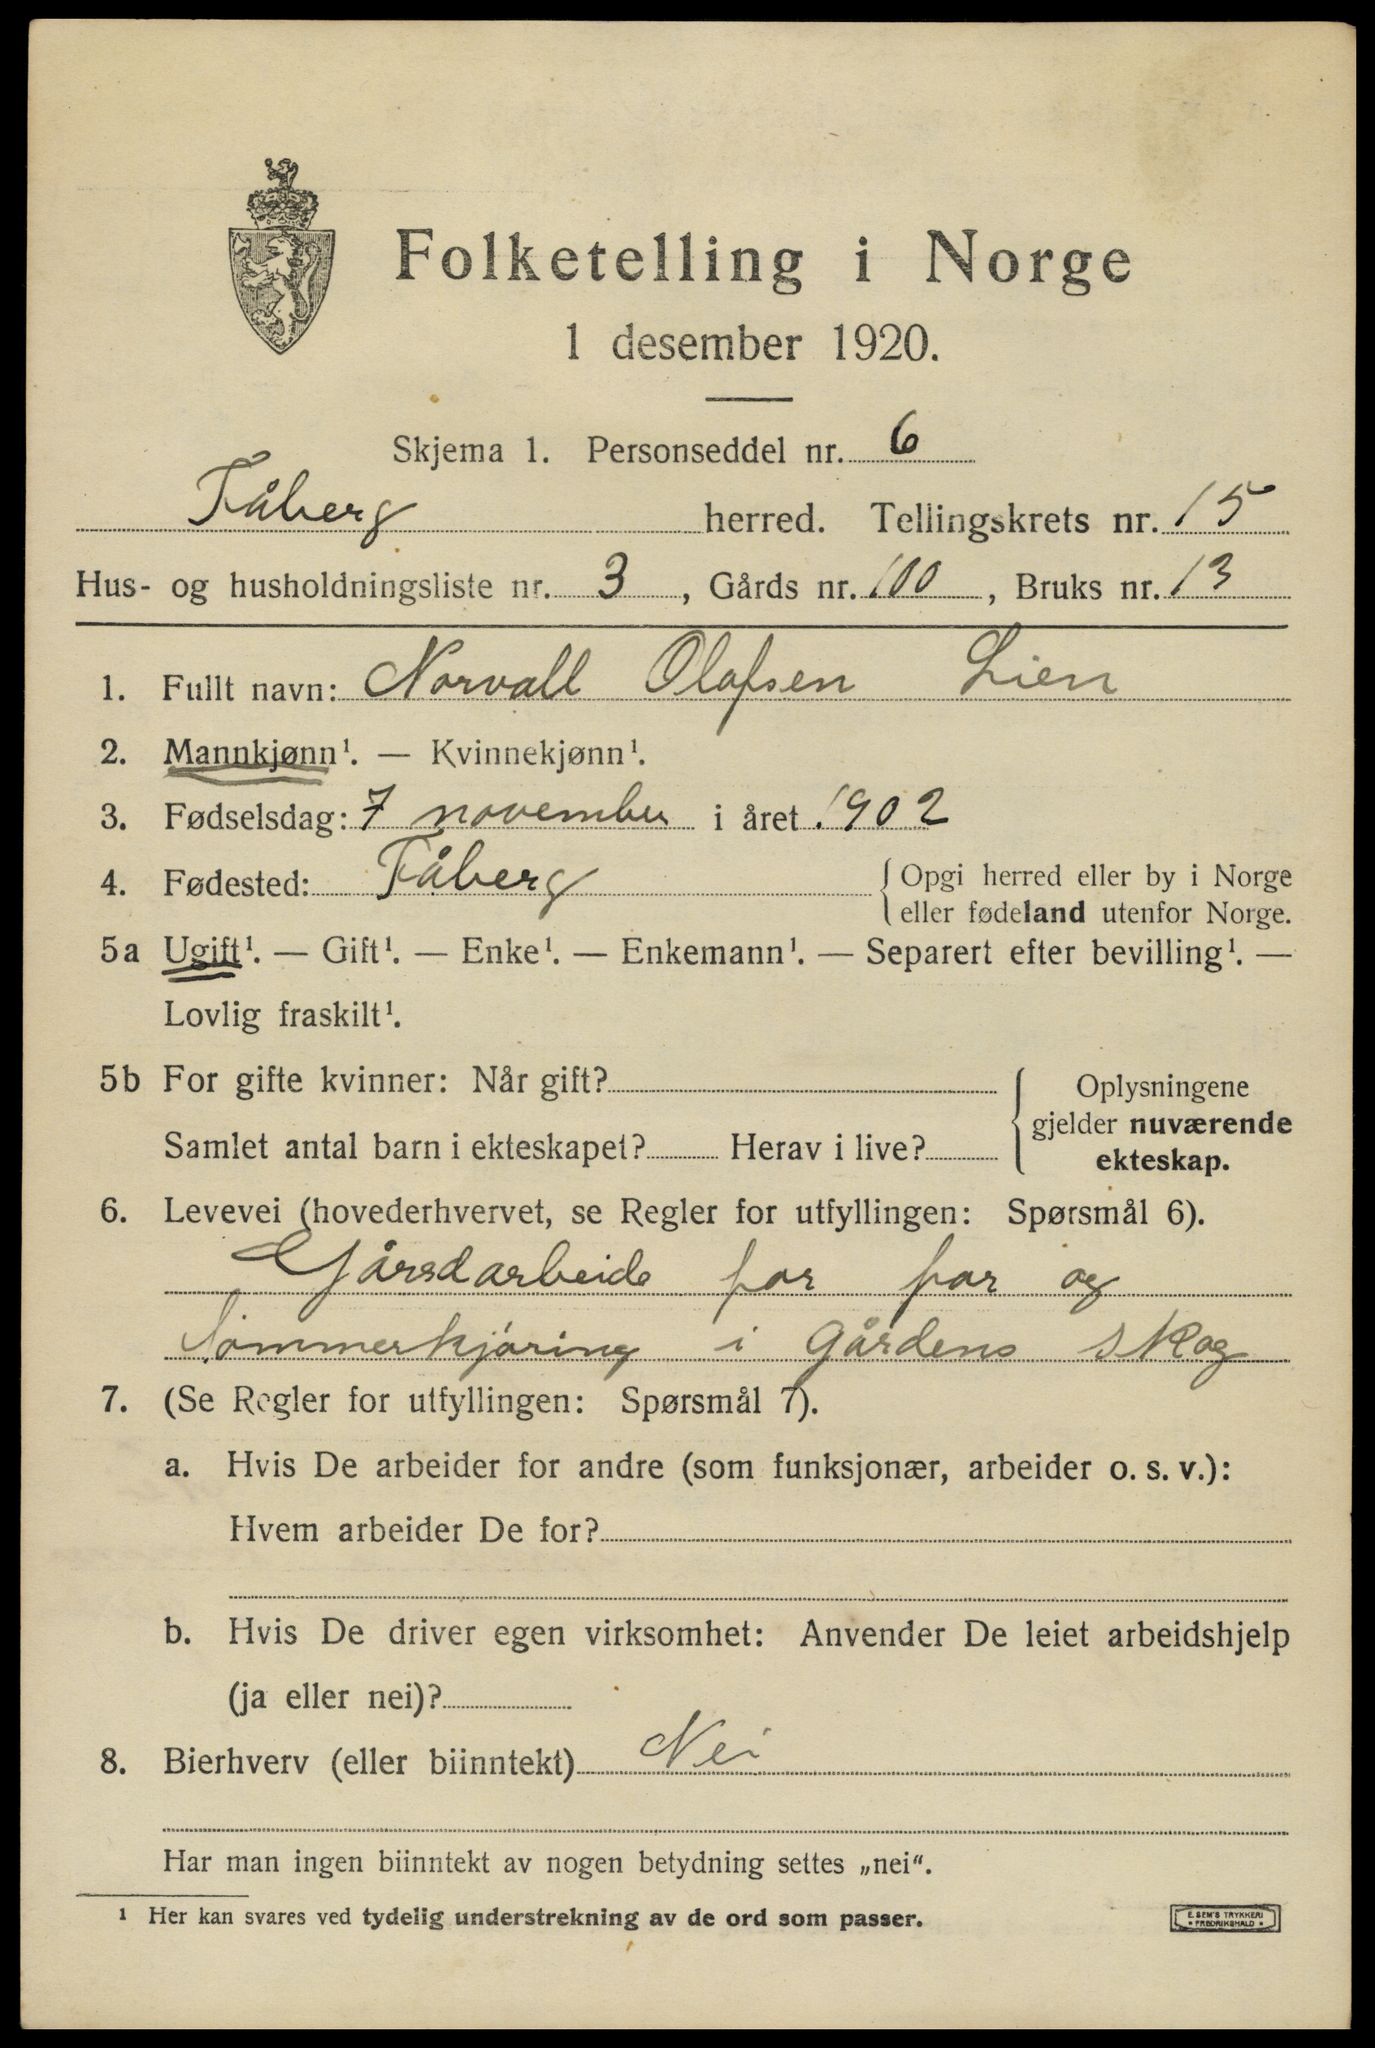 Folketelling i Norge
1 desember 1920.
Skjema 1. Personseddel nr. 6
Fåberg herred. Tellingskrets nr. 15
Hus- og husholdningsliste nr. 3, Gårds nr. 100, Bruks nr. 13
1. Fullt navn: Norvall Olafsen Lien
2. Mannkjønn¹. — Kvinnekjønn¹.
3. Fødselsdag: 7 november i året 1902
4. Fødested: Fåberg { Opgi herred eller by i Norge
eller fødeland utenfor Norge.
5a Ugift¹. — Gift¹. — Enke¹. — Enkemann¹. — Separert efter bevilling¹. —
Lovlig fraskilt¹.
5b For gifte kvinner: Når gift? { Oplysningene
gjelder nuværende
Samlet antal barn i ekteskapet? Herav i live?
ekteskap.
6. Levevei (hovederhvervet, se Regler for utfyllingen: Spørsmål 6).
Gårsdarbeide for far og
Tømmerkjøring i Gårdens skog
7. (Se Regler for utfyllingen: Spørsmål 7).
a. Hvis De arbeider for andre (som funksjonær, arbeider o. s. v.):
Hvem arbeider De for?
b. Hvis De driver egen virksomhet: Anvender De leiet arbeidshjelp
(ja eller nei)?
8. Bierhverv (eller biinntekt) Nei
Har man ingen biinntekt av nogen betydning settes „nei“.
¹ Her kan svares ved tydelig understrekning av de ord som passer.
E. SEM'S TRYKKERI
* FREDRIKSHALD *